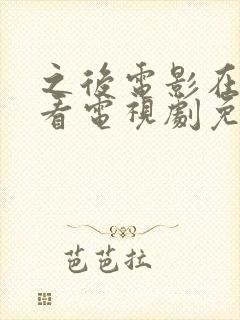 之後電影在
看電視劇免
芭芭拉